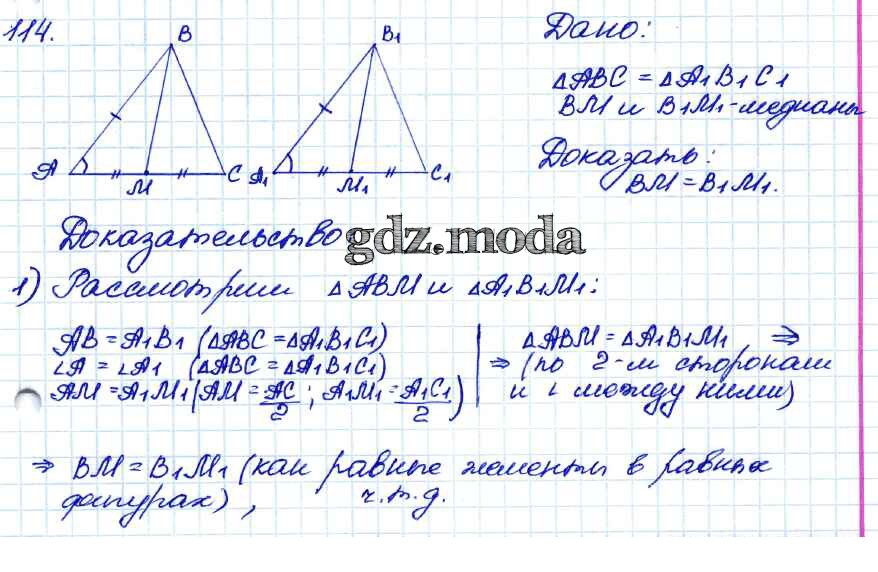 114.
B
B₁
A
M
C
A₁
M₁
C₁
Дано:
△ABC = △A₁B₁C₁
BM и B₁M₁-медианы
Доказать:
BM = B₁M₁.
Доказательство
gdz.moda
1) Рассмотрим △ABM и △A₁B₁M₁:
AB = A₁B₁ (△ABC = △A₁B₁C₁)
∠A = ∠A₁ (△ABC = △A₁B₁C₁)
AM = A₁M₁ (AM = AC/2 ; A₁M₁ = A₁C₁/2)
△ABM = △A₁B₁M₁ ⇒
⇒ (по 2-м сторонам
и ∠ между ними)
⇒ BM = B₁M₁ (как равные элементы в равных
фигурах), ч.т.д.